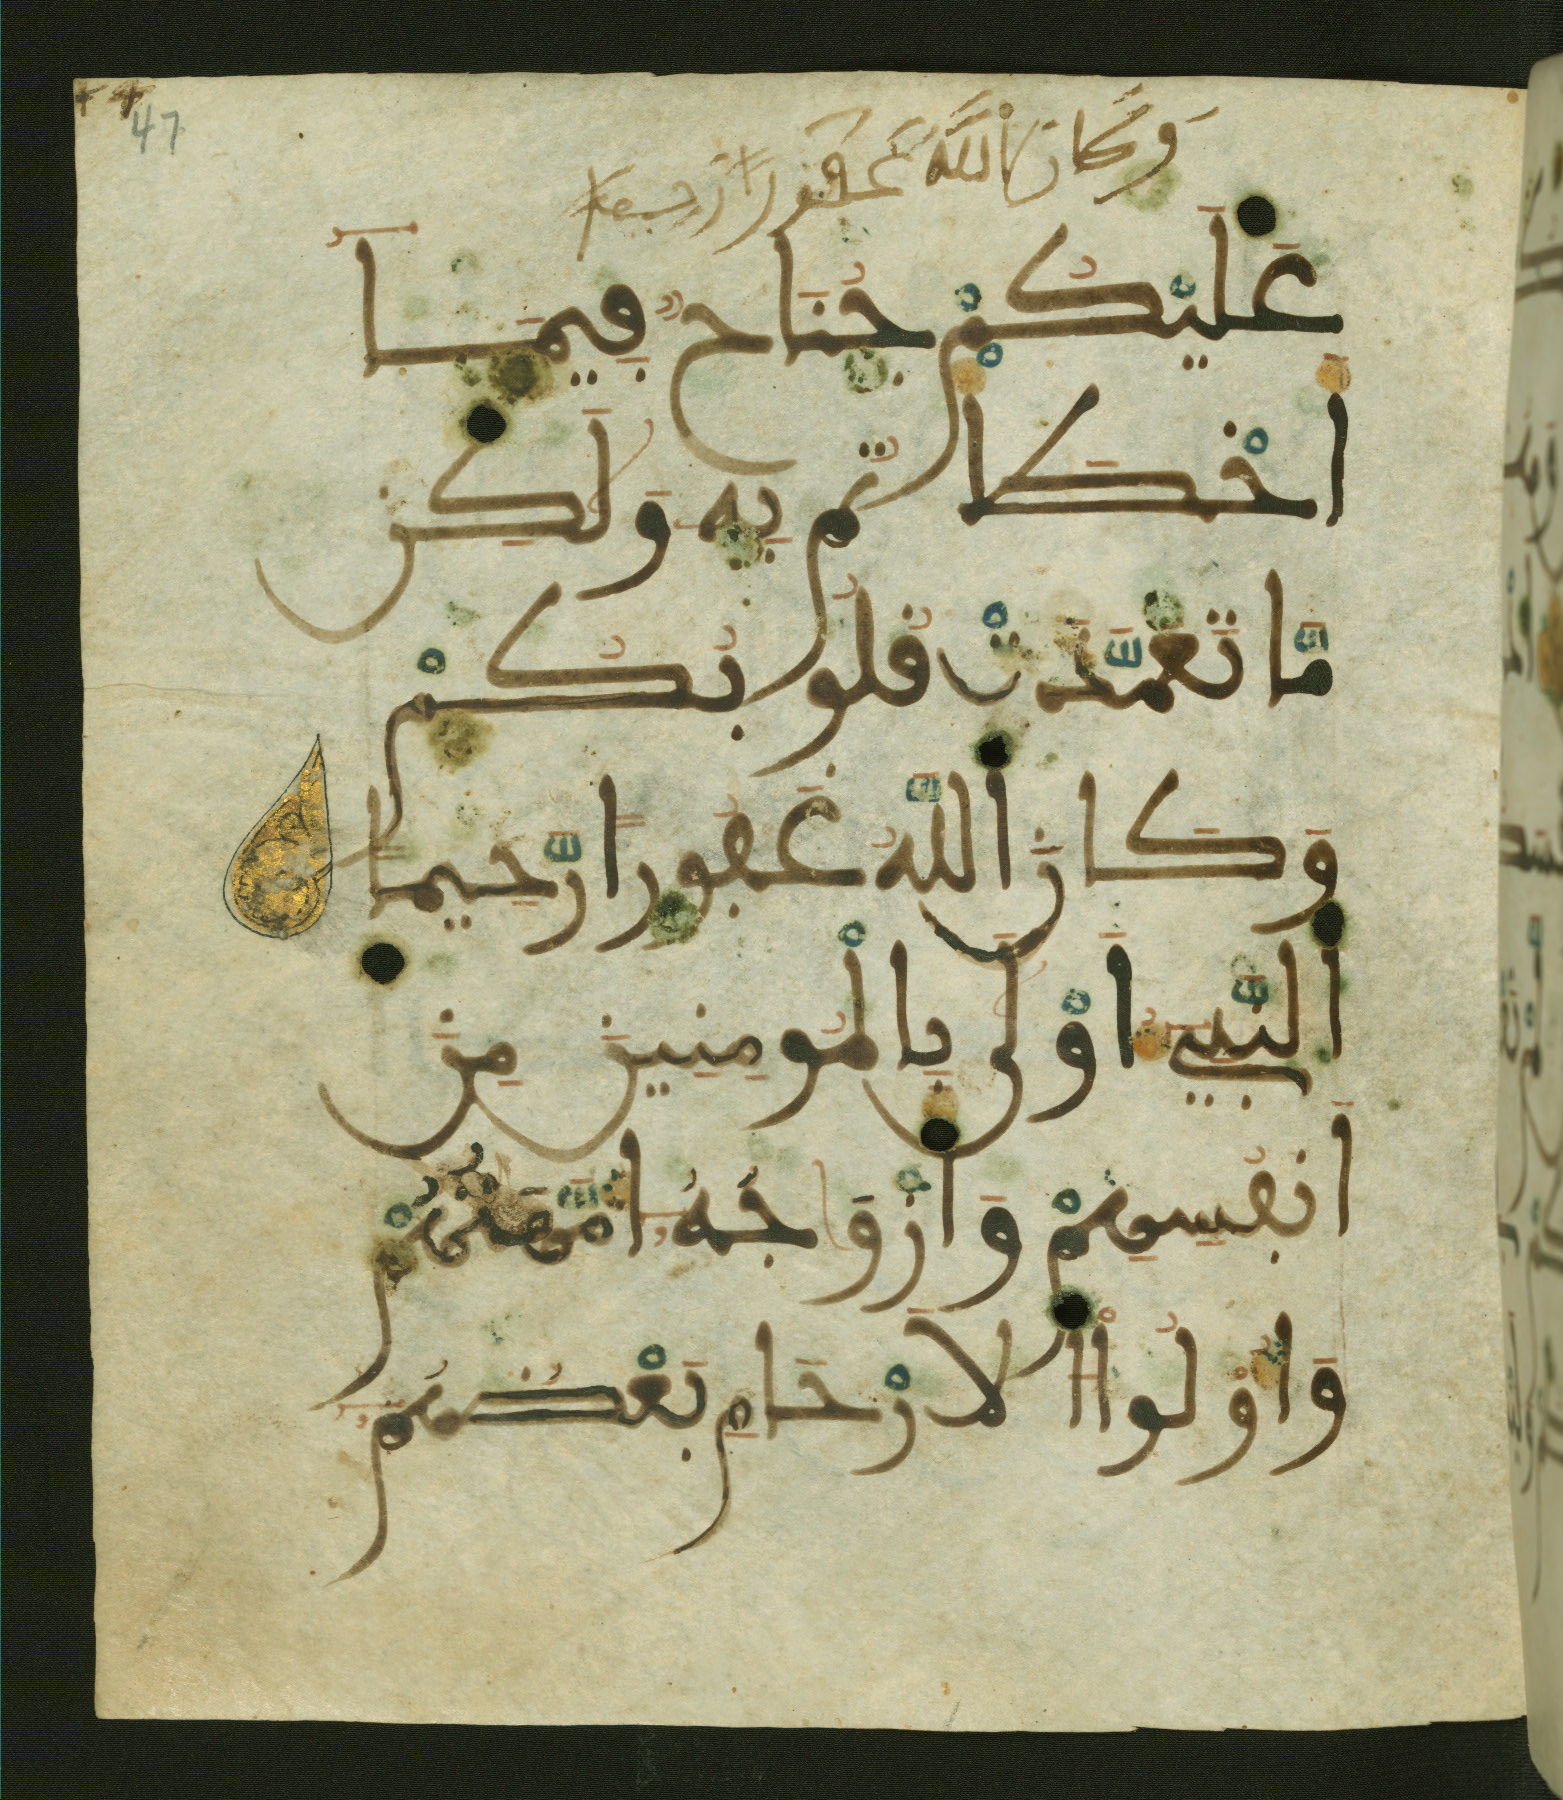 47
وَكَانَ اَللَّهُ غَفُوراً رَّحِيماً
عَلَيْكُمْ جُنَاحٌ فِيمَآ
أَخْطَأْ
تُم بِهِۦ وَلَٰكِن
مَّا تَعَمَّدَتْ قُلُوبُكُمْ
وَكَانَ اَللَّهُ غَفُوراً رَّحِيماً
اَلنَّبِيٓءُ أَوْلَىٰ بِالْمُومِنِينَ مِنَ
اَنفُسِهِمْ وَأَزْوَٰجُهُۥٓ أُمَّهَٰتُهُمْ
وَأُوْلُواْ اُ۬لَارْحَامِ بَعْضُهُمُۥٓ